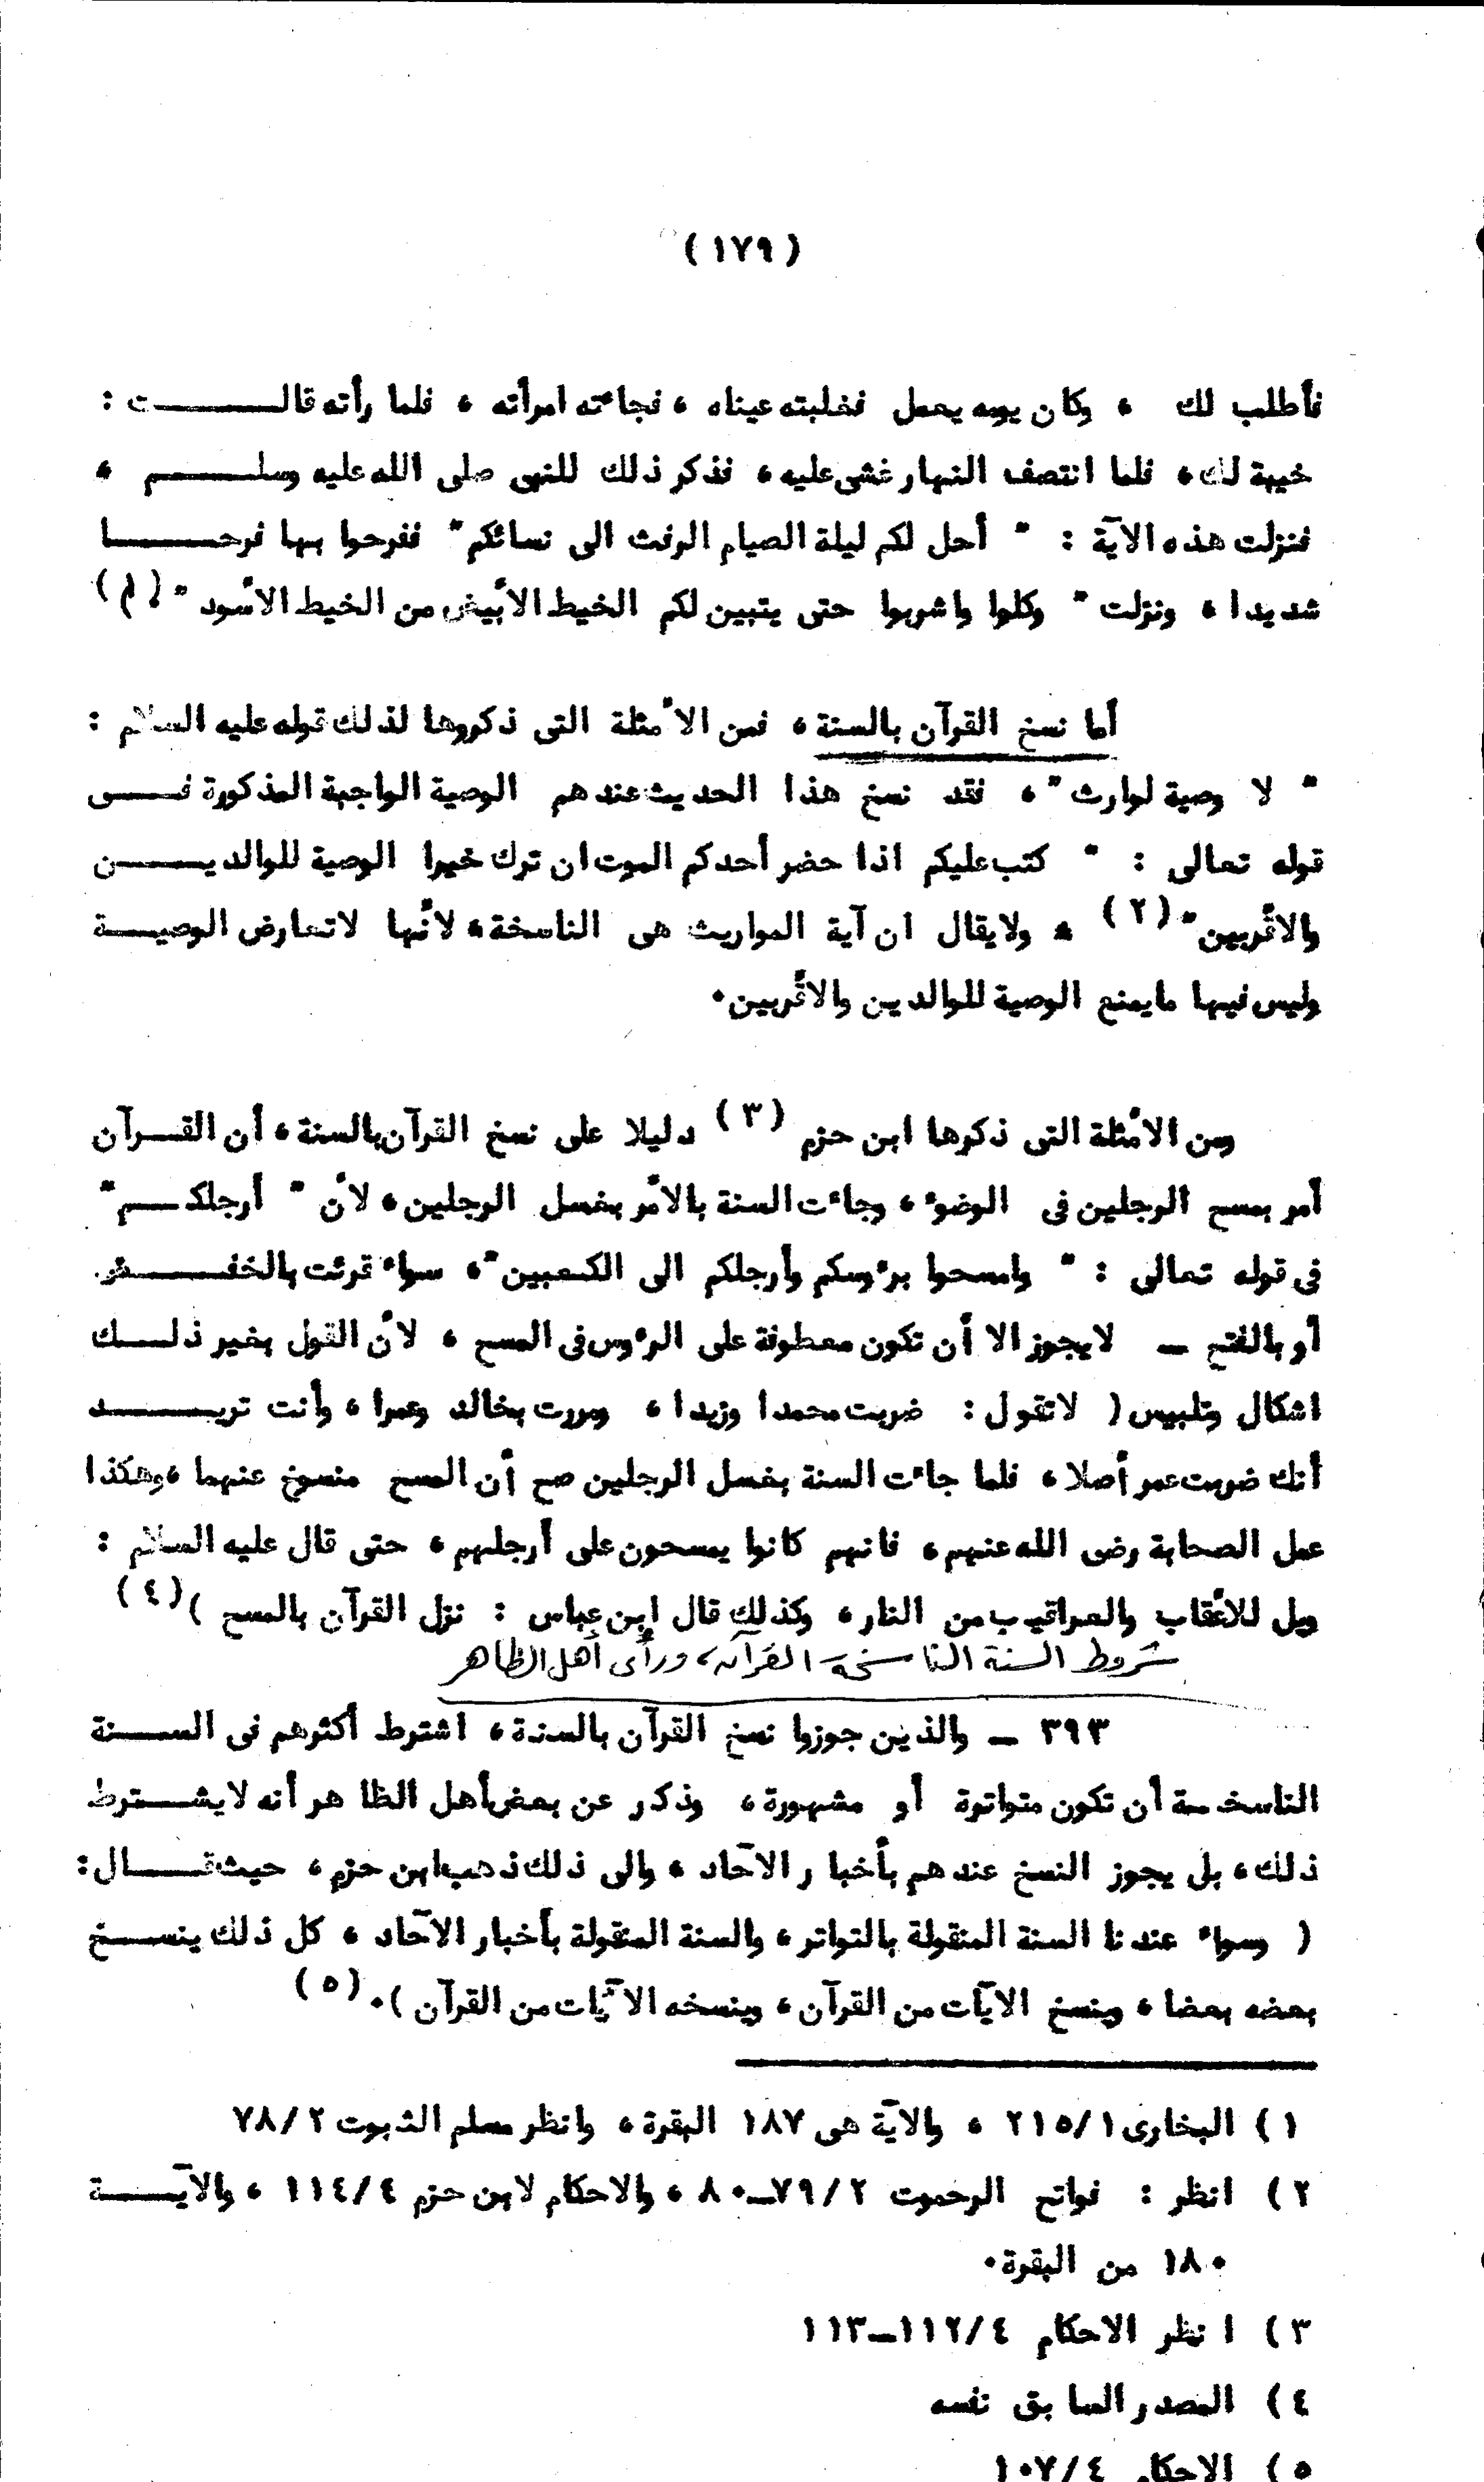 ( ١٧٩ )
فأطلب لك ، وكان يومه يعمل فغلبته عيناه ، فجاءته امرأته ، فلما رأته قالــــت :
خيبة لك ، فلما انتصف النهار غشى عليه ، فذكر ذلك للنبى صلى الله عليه وسلـــم ،
فنزلت هذه الآية : " أحل لكم ليلة الصيام الرفث الى نسائكم " ففرحوا بها فرحـــا
شديدا ، ونزلت " وكلوا واشربوا حتى يتبين لكم الخيط الأبيض من الخيط الأسود " . (١)
أما نسخ القرآن بالسنة ، فمن الأمثلة التى ذكروها لذلك قوله عليه السلام :
" لا وصية لوارث " ، فقد نسخ هذا الحديث عندهم الوصية الواجبة المذكورة فــى
قوله تعالى : " كتب عليكم اذا حضر أحدكم الموت ان ترك خيرا الوصية للوالديـــن
والأقربين " (٢) ، ولايقال ان آية المواريث هى الناسخة ، لأنها لاتعارض الوصيـة
وليس فيها مايمنع الوصية للوالدين والأقربين .
ومن الأمثلة التى ذكرها ابن حزم (٣) دليلا على نسخ القرآن بالسنة ، أن القـرآن
أمر بمسح الرجلين فى الوضوء ، وجاءت السنة بالأمر بغسل الرجلين ، لأن " أرجلكــم "
فى قوله تعالى : " وامسحوا برءوسكم وأرجلكم الى الكعبين " ، سواء قرئت بالخفـــض
أو بالفتح ــ لايجوز الا أن تكون معطوفة على الرءوس فى المسح ، لأن القول بغير ذلــك
اشكال وتلبيس ( لاتقول : ضربت محمدا وزيدا ، ومررت بخالد وعمرا ، وأنت تريــــد
أنك ضربت عمر أصلا ، فلما جاءت السنة بغسل الرجلين صح أن المسح منسوخ عنهما ، وهكذا
عمل الصحابة رضى الله عنهم ، فانهم كانوا يمسحون على أرجلهم ، حتى قال عليه السلام :
ويل للأعقاب والعراقيب من النار ، وكذلك قال ابن عباس : نزل القرآن بالمسح ) (٤)
شروط السنة الناسخة القرآن ، ورأى أهل الظاهر
٣٩٣ ــ والذين جوزوا نسخ القرآن بالسنة ، اشترط أكثرهم فى الســـنة
الناسخـة أن تكون متواترة أو مشهورة ، وذكر عن بعض أهل الظاهر أنه لايشــترط
ذلك ، بل يجوز النسخ عندهم بأخبار الآحاد ، والى ذلك ذهب ابن حزم ، حيث قــال :
( وسواء عندنا السنة المنقولة بالتواتر ، والسنة المنقولة بأخبار الآحاد ، كل ذلك ينســخ
بعضه بعضا ، وينسخ الآيات من القرآن ، وينسخه الآيات من القرآن ) . (٥)
١ ) البخارى ٢١٥/١ ، والآية هى ١٨٧ البقرة ، وانظر مسلم الثبوت ٧٨/٢
٢ ) انظر : فواتح الرحموت ٧٩/٢ــ٨٠ ، والاحكام لابن حزم ١١٤/٤ ، والآيـــة
١٨٠ من البقرة .
٣ ) انظر الاحكام ١١٢/٤ــ١١٣
٤ ) المصدر السابق نفسه
٥ ) الاحكام ١٠٧/٤